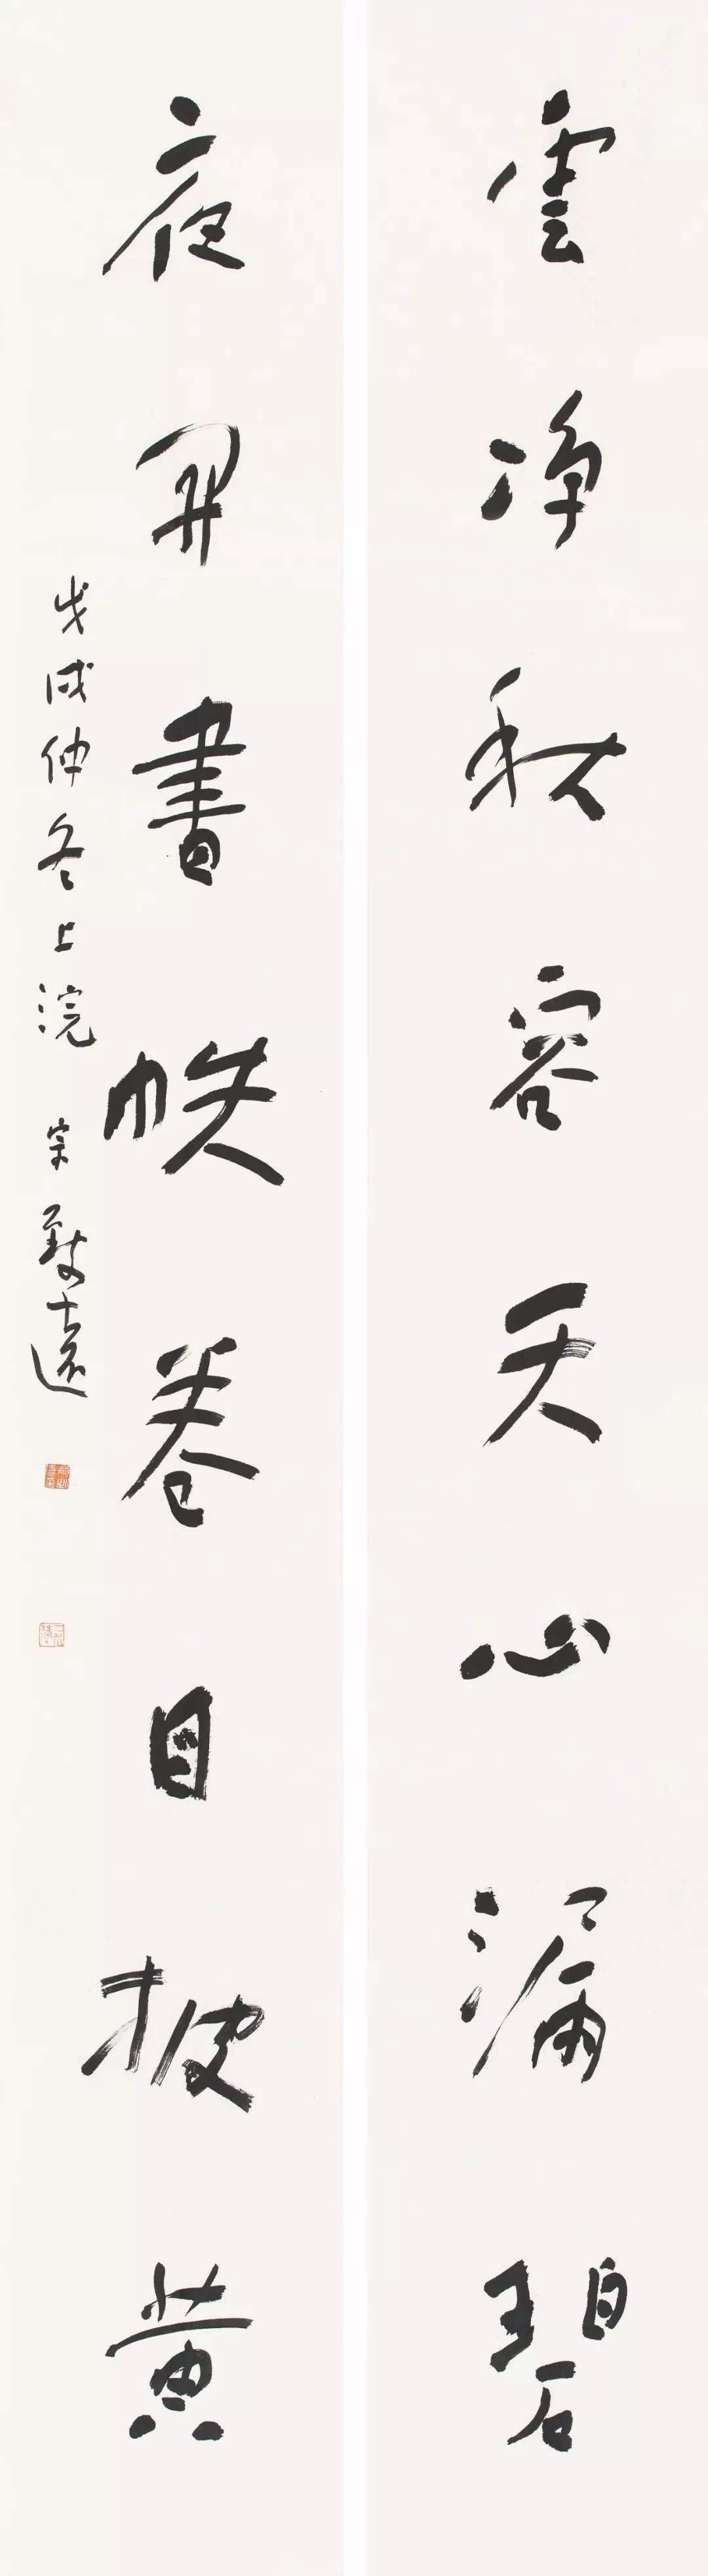 雲淨秋容天心漏碧
夜開書帙卷目披黄
戊戌仲冬上浣 宗致遠